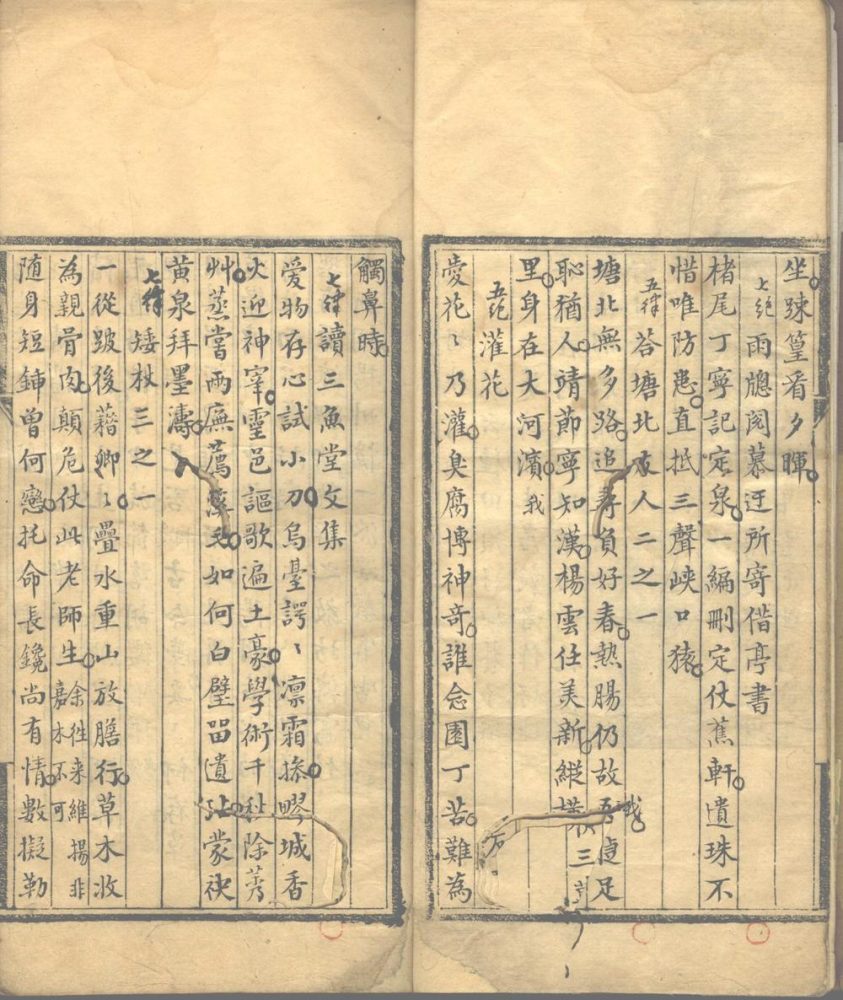 坐踈篁看夕暉
七絕雨牕閱慕迂所寄借亭書
楮尾丁寧記定泉一編刪定仗蕉軒遺珠不
惜唯防患直抵三聲峽口猿
五律荅塘北友人二之一
塘北無多路追尋負好春熱腸仍故吾捷足
恥猶人靖節寧知漢楊雲任美新縱橫三
里身在大河濱我
五絕灌花
愛花〻乃灌臭腐博神奇誰念園丁苦難為
觸鼻時
七律讀三魚堂文集
愛物存心試小刀烏臺諤〻凛霜摻疁城香
火迎神宰靈邑謳歌遍土豪學術千秋除莠
艸蒸嘗兩廡薦溪毛如何白璧留遺玷蒙袂
黃泉拜墨濤
七律矮杖三之一
一從跛後藉卿〻疊水重山放膽行草木收
為親骨肉顛危仗此老師生余徃来維揚非嘉木不可
随身短鍤曾何戀托命長鑱尚有情數擬勒